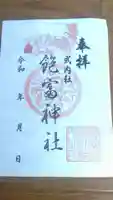 奉拝
式内社
飽富神社
令和　年　月　日